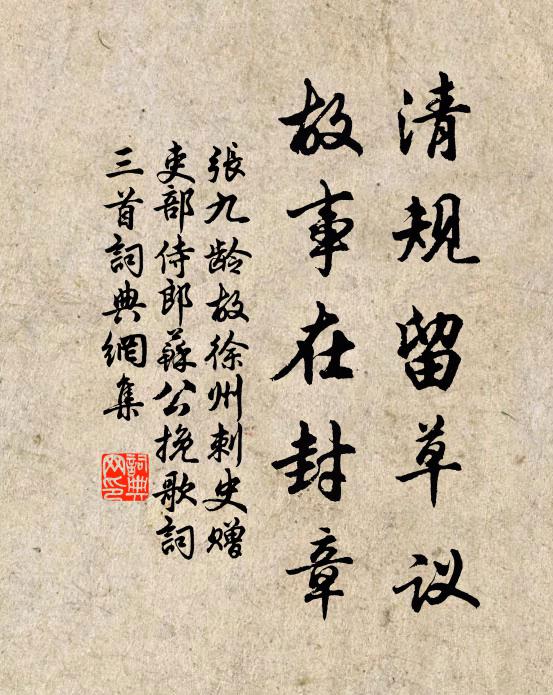 清規留草议
故事在封章
張九龄故徐州刺史赠
吏部侍郎蘇公挽歌詞
三首詞典網集
詞典
网印